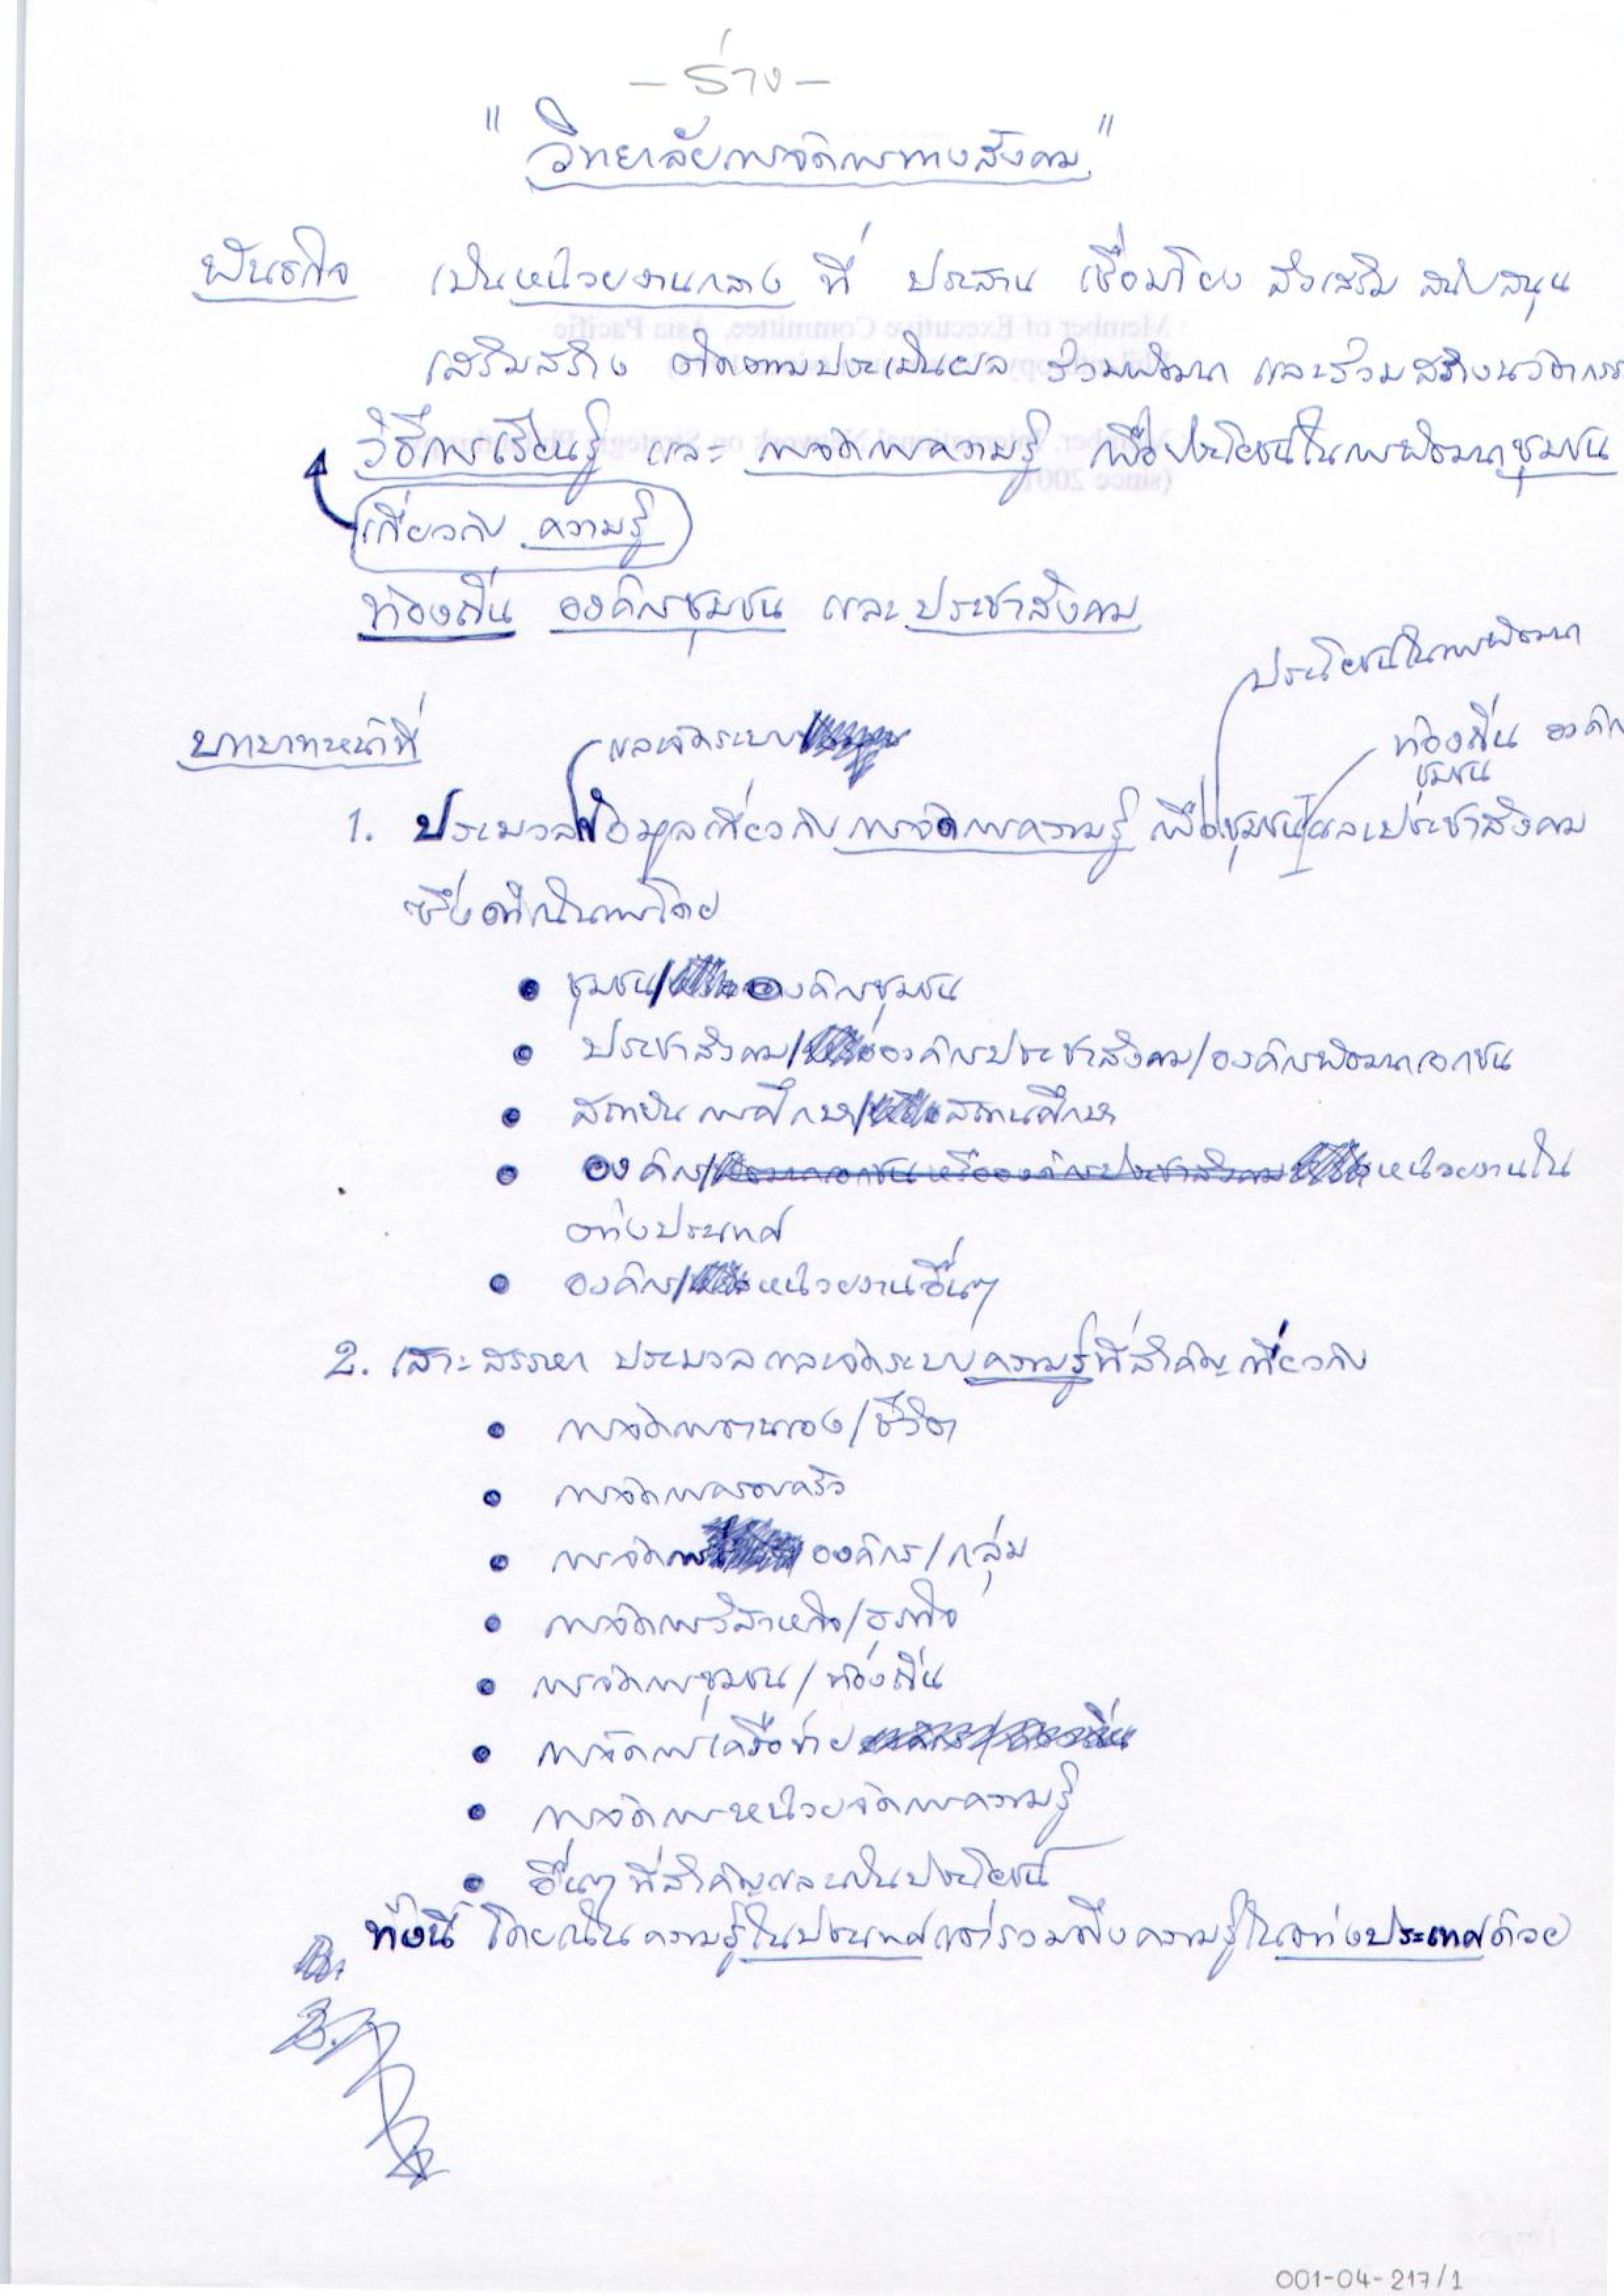 - ร่าง -
"วิทยาลัยการจัดการทางสังคม"
พันธกิจ เป็นหน่วยงานกลาง ที่ ประสาน เชื่อมโยง ส่งเสริม สนับสนุน
เสริมสร้าง ติดตามประเมินผล ร่วมพัฒนา และร่วมสร้างนวัตกรรม
วิธีการเรียนรู้ และ การจัดการความรู้ เพื่อประโยชน์ในการพัฒนาชุมชน
เกี่ยวกับ ความรู้
ท้องถิ่น องค์กรชุมชน และประชาสังคม
ประโยชน์ในการพัฒนา
บทบาทหน้าที่
และจัดระบบ
ท้องถิ่น องค์กร
ชุมชน
1. ประมวลข้อมูลเกี่ยวกับการจัดการความรู้ เพื่อชุมชนและประชาสังคม
ซึ่งดำเนินการโดย
• ชุมชน/องค์กรชุมชน
• ประชาสังคม/องค์กรประชาสังคม/องค์กรพัฒนาเอกชน
• สถาบันการศึกษา/สถานศึกษา
• องค์กร/พัฒนาเอกชน หรือองค์กรประชาสังคม หน่วยงานใน
ต่างประเทศ
• องค์กร/หน่วยงานอื่นๆ
2. เสาะสรรหา ประมวลและจัดระบบความรู้ที่สำคัญเกี่ยวกับ
• การจัดการตนเอง/ชีวิต
• การจัดการครอบครัว
• การจัดการองค์กร/กลุ่ม
• การจัดการวิสาหกิจ/ธุรกิจ
• การจัดการชุมชน/ท้องถิ่น
• การจัดการเครือข่าย
• การจัดการหน่วยจัดการความรู้
• อื่นๆ ที่สำคัญและเป็นประโยชน์
ทั้งนี้ โดยเน้นความรู้ในประเทศแต่รวมถึงความรู้ในต่างประเทศด้วย
3.
001-04-217/1